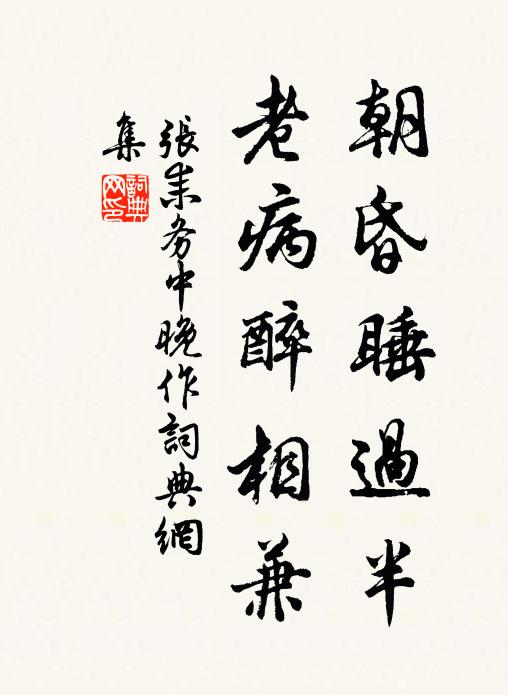 朝昏睡過半
老病醉相兼
張耒務中晚作詞典網
集
詞典
网印